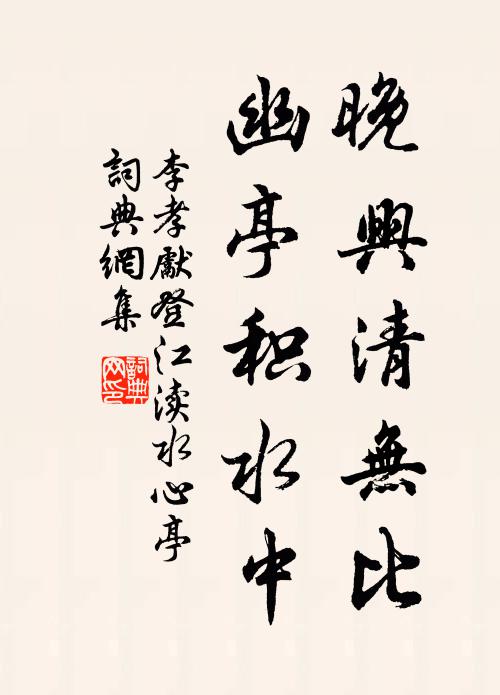 晚興清無比
幽亭积水中
李孝獻登江渎水心亭
詞典網集
詞典
网印